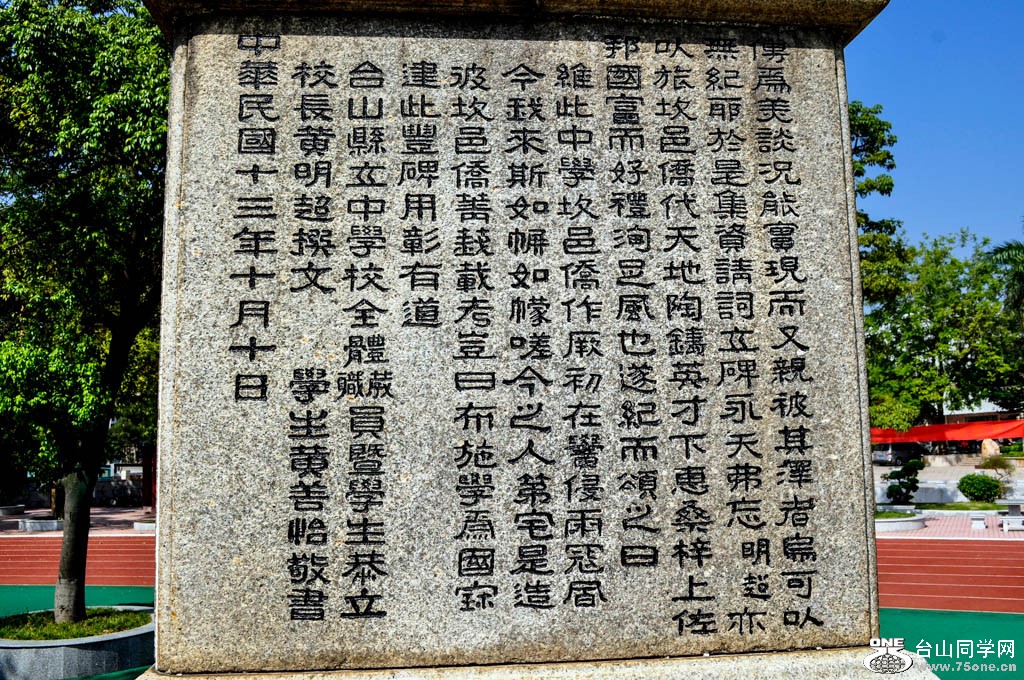 傳為美談況能實現而又親被其澤者烏可以
無紀耶於是集資請詞立碑永矢弗忘明超亦
以旅坎邑僑代天地陶鑄英才下惠桑梓上佐
邦國富而好禮洵足風也遂紀而頌之曰
維此中學坎邑僑作厥初在黌侵雨
今我來斯如帡如幪嗟今之人第宅是造
彼坎邑僑善載考豈曰布施學為國寶
建此豐碑用彰有道
台山縣立中學校全體職員暨學生恭立
校長黃明超撰文 學生黃善怡敬書
中華民國十三年十月十日
ONE
台山同学网
www.75one.cn